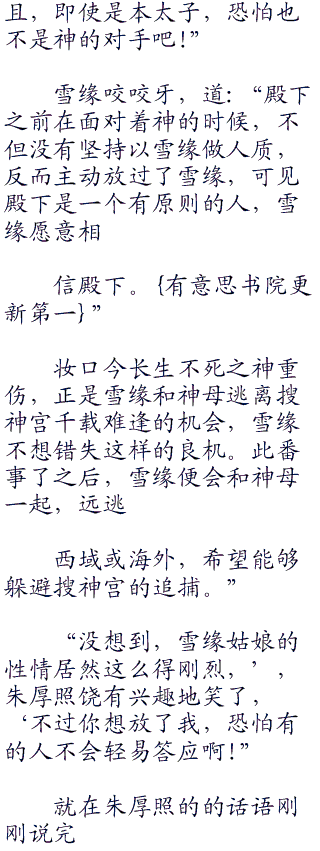 且，即使是本太子，恐怕也
不是神的对手吧！”
雪缘咬咬牙，道：“殿下
之前在面对着神的时候，不
但没有坚持以雪缘做人质，
反而主动放过了雪缘，可见
殿下是一个有原则的人，雪
缘愿意相
信殿下。{有意思书院更
新第一}”
妆口今长生不死之神重
伤，正是雪缘和神母逃离搜
神宫千载难逢的机会，雪缘
不想错失这样的良机。此番
事了之后，雪缘便会和神母
一起，远逃
西域或海外，希望能够
躲避搜神宫的追捕。”
“没想到，雪缘姑娘的
性情居然这么得刚烈，’，
朱厚照饶有兴趣地笑了，
‘不过你想放了我，恐怕有
的人不会轻易答应啊！”
就在朱厚照的的话语刚
刚说完